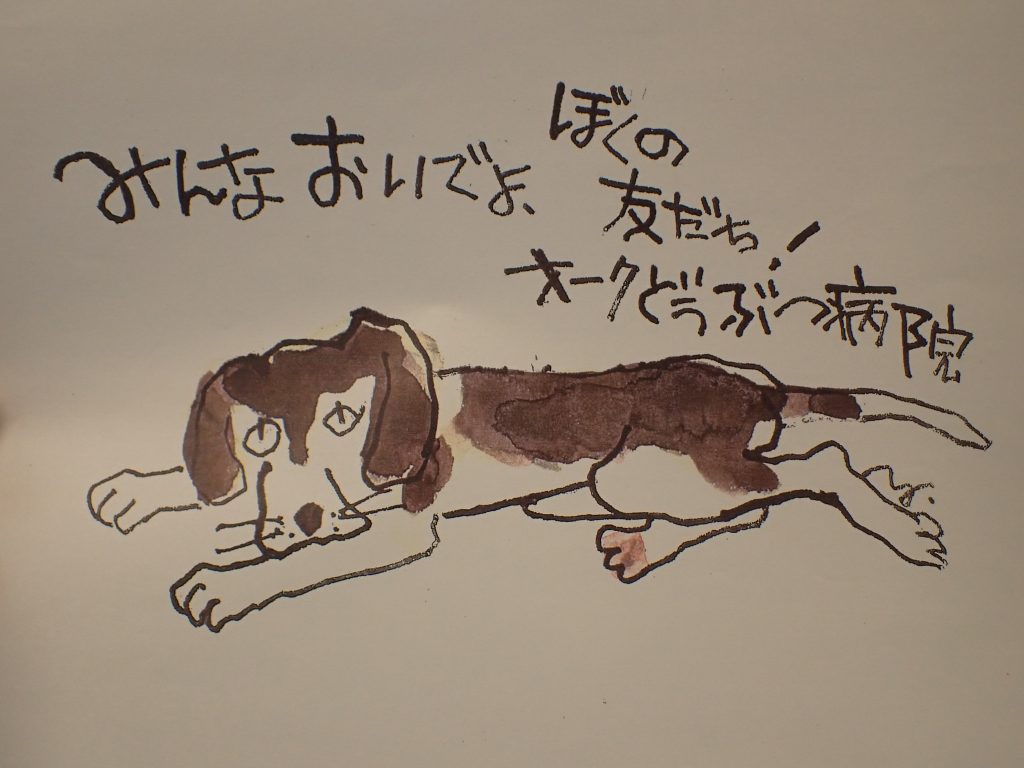 みんなおいでよ、
ぼくの
友だち!
オークどうぶつ病院